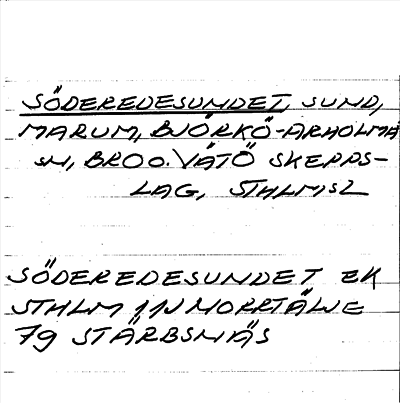 SÖDEREDESUNDET, SUND,
MARUM, BJÖRKÖ-ARHOLMA
SN, BRO O. VÄTÖ SKEPPS-
LAG, STHLMS L
SÖDEREDESUNDET EK
STHLM 11N NORRTÄLJE
79 STÄRBSNÄS